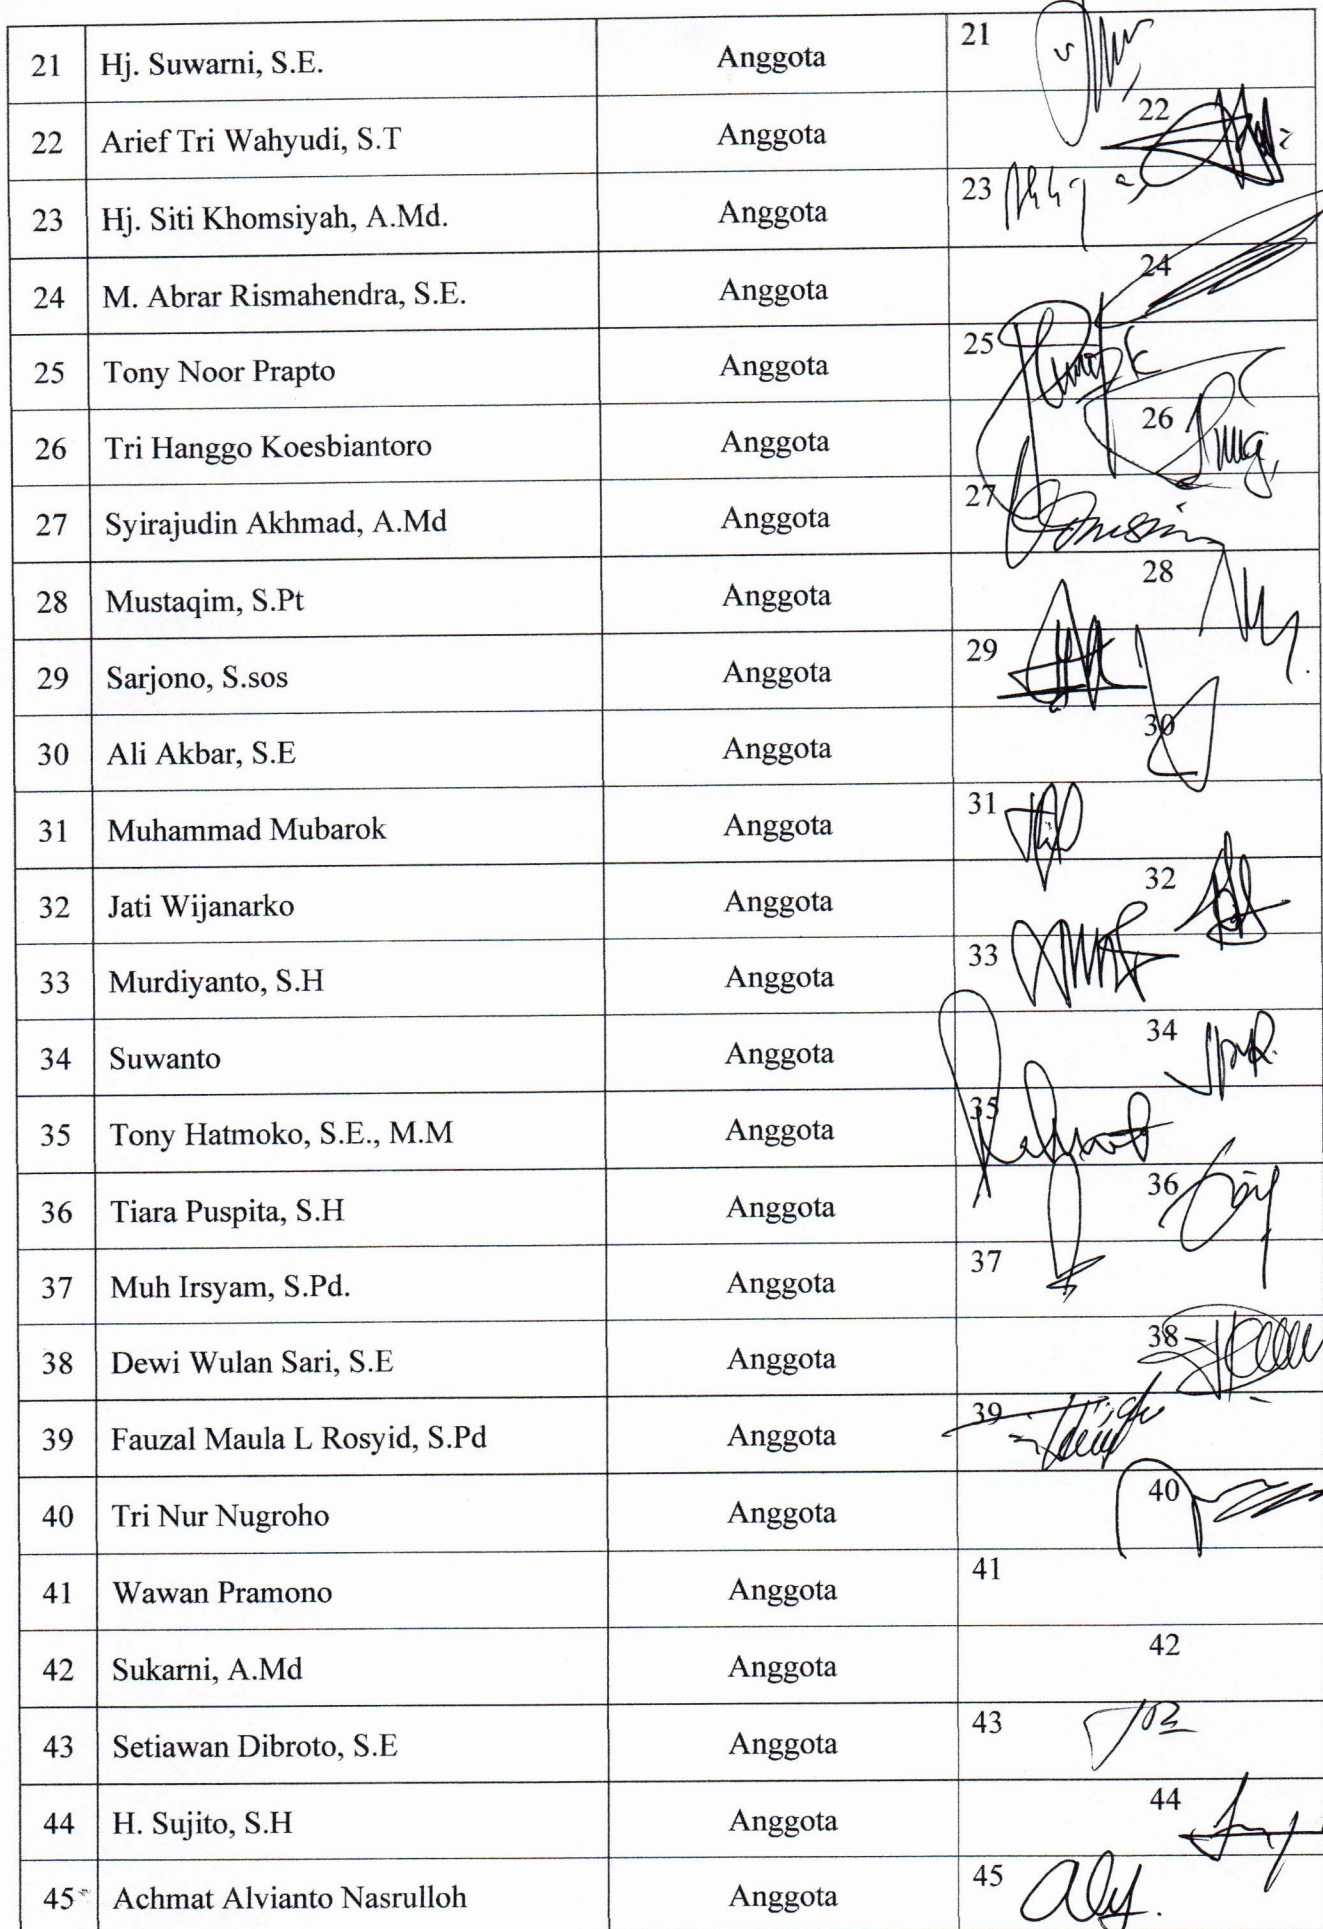 21 Hj. Suwarni, S.E. Anggota 21
22 Arief Tri Wahyudi, S.T Anggota 22
23 Hj. Siti Khomsiyah, A.Md. Anggota 23
24 M. Abrar Rismahendra, S.E. Anggota 24
25 Tony Noor Prapto Anggota 25
26 Tri Hanggo Koesbiantoro Anggota 26
27 Syirajudin Akhmad, A.Md Anggota 27
28 Mustaqim, S.Pt Anggota 28
29 Sarjono, S.sos Anggota 29
30 Ali Akbar, S.E Anggota 30
31 Muhammad Mubarok Anggota 31
32 Jati Wijanarko Anggota 32
33 Murdiyanto, S.H Anggota 33
34 Suwanto Anggota 34
35 Tony Hatmoko, S.E., M.M Anggota 35
36 Tiara Puspita, S.H Anggota 36
37 Muh Irsyam, S.Pd. Anggota 37
38 Dewi Wulan Sari, S.E Anggota 38
39 Fauzal Maula L Rosyid, S.Pd Anggota 39
40 Tri Nur Nugroho Anggota 40
41 Wawan Pramono Anggota 41
42 Sukarni, A.Md Anggota 42
43 Setiawan Dibroto, S.E Anggota 43
44 H. Sujito, S.H Anggota 44
45 Achmat Alvianto Nasrulloh Anggota 45